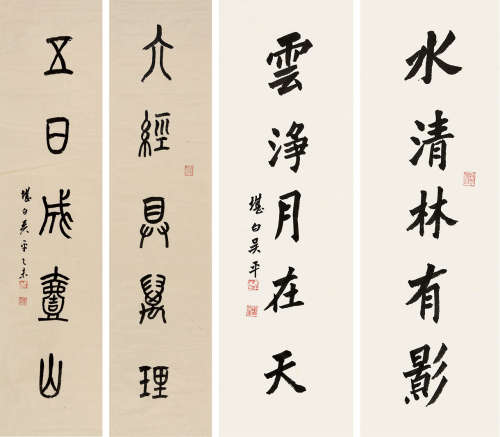 水清林有影
雲淨月在天
堪白吳平
六經具萬理
五日成山
堪白吳平乙未